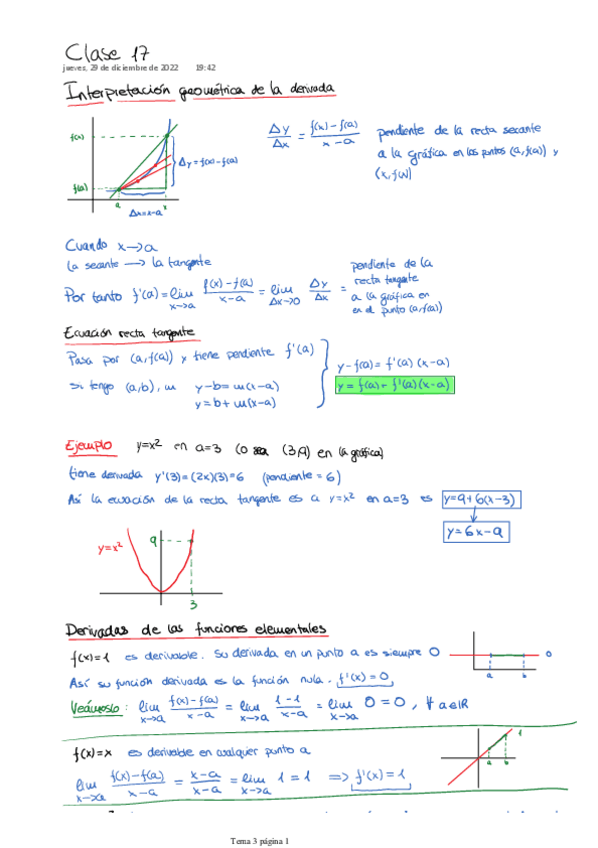 Clase 17
jueves, 29 de diciembre de 2022 19:42
Interpretación geométrica de la derivada
f(x)
f(a)
a
x
Δy = f(x) - f(a)
Δx = x-a
Δy/Δx = (f(x) - f(a))/(x - a)
pendiente de la recta secante
a la gráfica en los puntos (a, f(a)) y
(x, f(x))
Cuando x → a
la secante → la tangente
Por tanto f'(a) = lim x→a (f(x) - f(a))/(x - a) = lim Δx→0 Δy/Δx =
pendiente de la
recta tangente
a la gráfica en
en el punto (a, f(a))
Ecuación recta tangente
Pasa por (a, f(a)) y tiene pendiente f'(a)
Si tengo (a,b), m y - b = m(x - a)
y = b + m(x - a)
y - f(a) = f'(a) (x - a)
y = f(a) + f'(a) (x - a)
Ejemplo y=x² en a=3 (o sea (3,9) en la gráfica)
tiene derivada y'(3) = (2x)(3) = 6 (pendiente = 6)
Así la ecuación de la recta tangente es a y=x² en a=3 es y=9+6(x-3)
y = 6x - 9
y=x²
9
3
Derivadas de las funciones elementales
f(x) = 1 es derivable. Su derivada en un punto a es siempre 0
Así su función derivada es la función nula. f'(x) = 0
a
b
0
Veámoslo: lim x→a (f(x) - f(a))/(x - a) = lim x→a (1 - 1)/(x - a) = lim x→a 0 = 0, ∀ a∈ℝ
f(x) = x es derivable en cualquier punto a
lim x→a (f(x) - f(a))/(x - a) = (x - a)/(x - a) = lim x→a 1 = 1 ⇒ f'(x) = 1
a
b
1
Tema 3 página 1